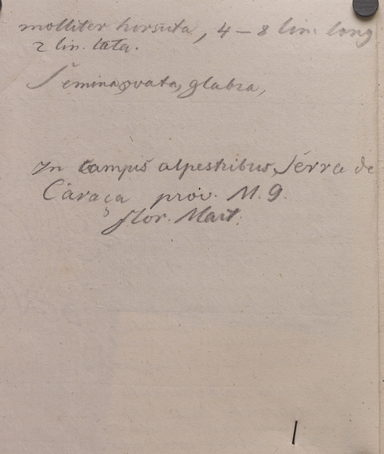 molliter hirsuta, 4 – 8 lin. long
2 lin. lata.
Semina ovata, glabra,
In campis alpestribus Serra de
Caraça prov. M. G.
flor. Mart.